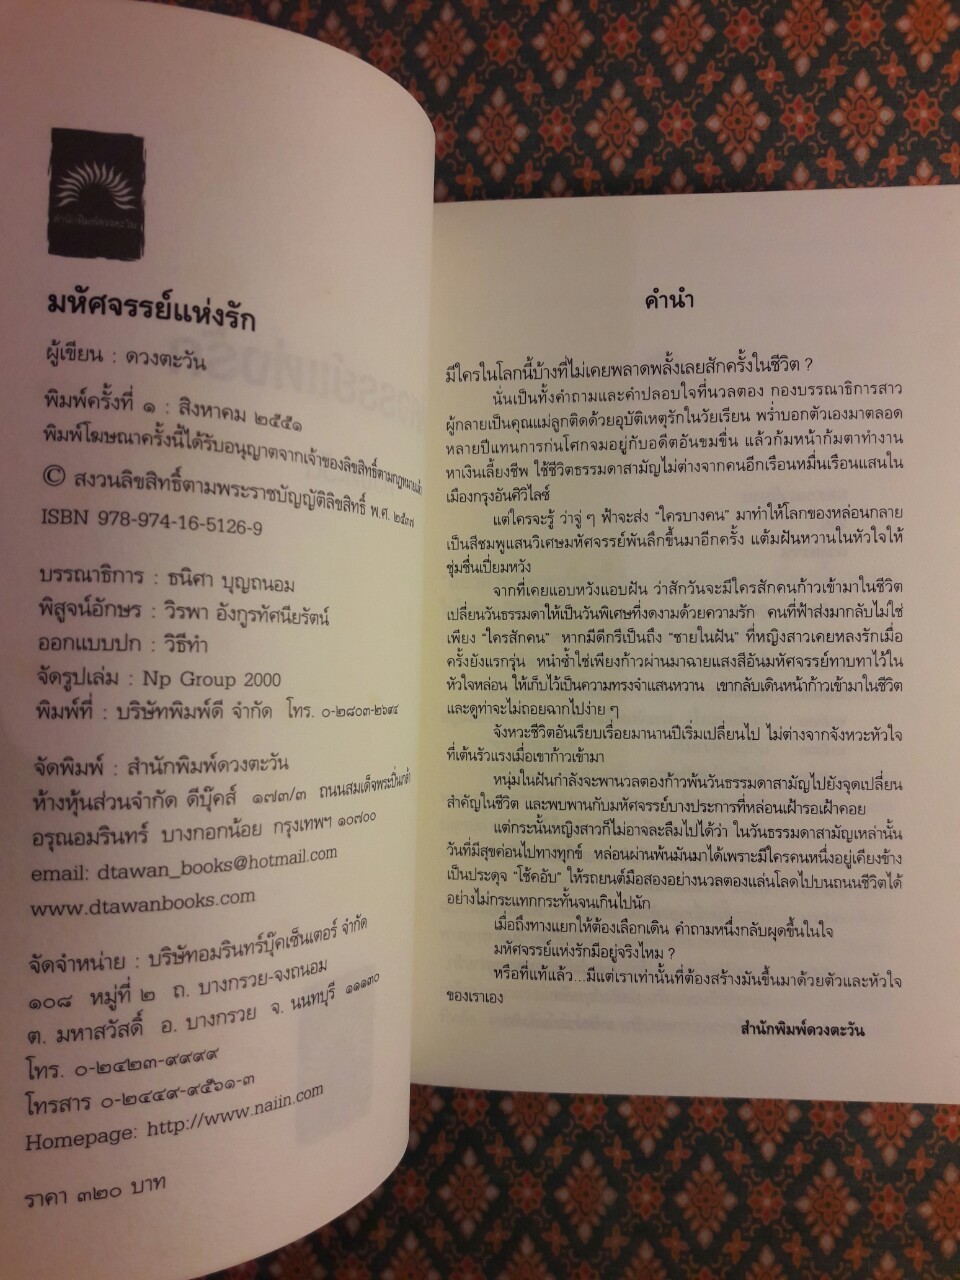 สำนักพิมพ์ดวงตะวัน
มหัศจรรย์แห่งรัก
ผู้เขียน : ดวงตะวัน
พิมพ์ครั้งที่ ๑ : สิงหาคม ๒๕๕๑
พิมพ์โฆษณาครั้งนี้ได้รับอนุญาตจากเจ้าของลิขสิทธิ์ตามกฎหมายแล้ว
© สงวนลิขสิทธิ์ตามพระราชบัญญัติลิขสิทธิ์ พ.ศ. ๒๕๓๗
ISBN 978-974-16-5126-9
บรรณาธิการ : ธนิศา บุญถนอม
พิสูจน์อักษร : วิรพา อังกูรทัศนียรัตน์
ออกแบบปก : วิธีทำ
จัดรูปเล่ม : Np Group 2000
พิมพ์ที่ : บริษัทพิมพ์ดี จำกัด โทร. ๐-๒๘๐๓-๒๖๙๔
จัดพิมพ์ : สำนักพิมพ์ดวงตะวัน
ห้างหุ้นส่วนจำกัด ดีบุ๊คส์ ๑๗๓/๓ ถนนสมเด็จพระปิ่นเกล้า
อรุณอมรินทร์ บางกอกน้อย กรุงเทพฯ ๑๐๗๐๐
email: dtawan_books@hotmail.com
www.dtawanbooks.com
จัดจำหน่าย : บริษัทอมรินทร์บุ๊คเซ็นเตอร์ จำกัด
๑๐๘ หมู่ที่ ๒ ถ. บางกรวย-จงถนอม
ต. มหาสวัสดิ์ อ. บางกรวย จ. นนทบุรี ๑๑๑๓๐
โทร. ๐-๒๔๒๓-๙๙๙๙
โทรสาร ๐-๒๔๔๙-๙๕๖๑-๓
Homepage: http://www.naiin.com
ราคา ๓๒๐ บาท
คำนำ
มีใครในโลกนี้บ้างที่ไม่เคยพลาดพลั้งเลยสักครั้งในชีวิต ?
นั่นเป็นทั้งคำถามและคำปลอบใจที่นวลตอง กองบรรณาธิการสาว
ผู้กลายเป็นคุณแม่ลูกติดด้วยอุบัติเหตุรักในวัยเรียน พร่ำบอกตัวเองมาตลอด
หลายปีแทนการก่นโศกจมอยู่กับอดีตอันขมขื่น แล้วก้มหน้าก้มตาทำงาน
หาเงินเลี้ยงชีพ ใช้ชีวิตธรรมดาสามัญไม่ต่างจากคนอีกเรือนหมื่นเรือนแสนใน
เมืองกรุงอันศิวิไลซ์
แต่ใครจะรู้ ว่าจู่ ๆ ฟ้าจะส่ง “ใครบางคน” มาทำให้โลกของหล่อนกลาย
เป็นสีชมพูแสนวิเศษมหัศจรรย์พันลึกขึ้นมาอีกครั้ง แต้มฝันหวานในหัวใจให้
ชุ่มชื่นเปี่ยมหวัง
จากที่เคยแอบหวังแอบฝัน ว่าสักวันจะมีใครสักคนก้าวเข้ามาในชีวิต
เปลี่ยนวันธรรมดาให้เป็นวันพิเศษที่งดงามด้วยความรัก คนที่ฟ้าส่งมากลับไม่ใช่
เพียง “ใครสักคน” หากมีดีกรีเป็นถึง “ชายในฝัน” ที่หญิงสาวเคยหลงรักเมื่อ
ครั้งยังแรกรุ่น หนำซ้ำใช่เพียงก้าวผ่านมาฉายแสงสีอันมหัศจรรย์ทาบทาไว้ใน
หัวใจหล่อน ให้เก็บไว้เป็นความทรงจำแสนหวาน เขากลับเดินหน้าก้าวเข้ามาในชีวิต
และดูท่าจะไม่ถอยฉากไปง่าย ๆ
จังหวะชีวิตอันเรียบเรื่อยมานานปีเริ่มเปลี่ยนไป ไม่ต่างจากจังหวะหัวใจ
ที่เต้นรัวแรงเมื่อเขาก้าวเข้ามา
หนุ่มในฝันกำลังจะพานวลตองก้าวพ้นวันธรรมดาสามัญไปยังจุดเปลี่ยน
สำคัญในชีวิต และพบพานกับมหัศจรรย์บางประการที่หล่อนเฝ้ารอเฝ้าคอย
แต่กระนั้นหญิงสาวก็ไม่อาจละลืมไปได้ว่า ในวันธรรมดาสามัญเหล่านั้น
วันที่มีสุขค่อนไปทางทุกข์ หล่อนผ่านพ้นมันมาได้เพราะมีใครคนหนึ่งอยู่เคียงข้าง
เป็นประดุจ “โช้คอับ” ให้รถยนต์มือสองอย่างนวลตองแล่นโลดไปบนถนนชีวิตได้
อย่างไม่กระแทกกระทั้นจนเกินไปนัก
เมื่อถึงทางแยกให้ต้องเลือกเดิน คำถามหนึ่งกลับผุดขึ้นในใจ
มหัศจรรย์แห่งรักมีอยู่จริงไหม ?
หรือที่แท้แล้ว...มีแต่เราเท่านั้นที่ต้องสร้างมันขึ้นมาด้วยตัวและหัวใจ
ของเราเอง
สำนักพิมพ์ดวงตะวัน